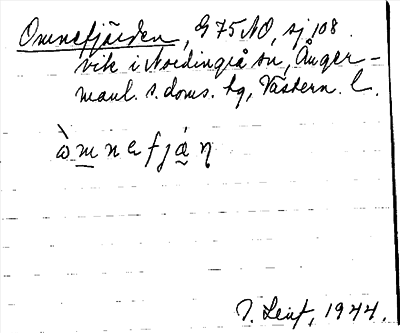 Omnefjärden, G 75 NO, sj 108.
vik i Nordingrå sn, Ånger-
manl. s. doms. tg, Västern. l.
òmnefjáη
J. Leif, 1944.